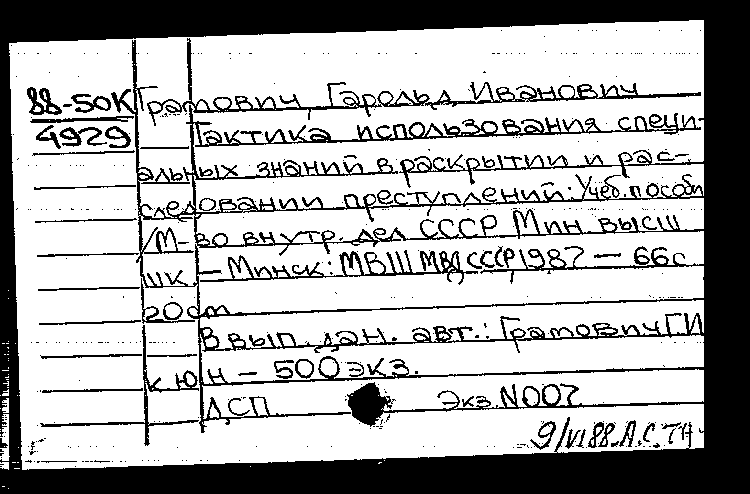 88-50К Грамович, Гарольд Иванович
4929 Тактика использования специ-
альных знаний в раскрытии и рас-
следовании преступлений: Учеб. пособи
/М-во внутр. дел СССР Мин. высш
шк. – Минск: МВШ МВД СССР, 1987 – 66с
20 см.
В вып. дан. авт.: Грамович Г.И
к.ю.н – 500 экз.
ДСП Экз. N007
9/VI 88. Л.С.